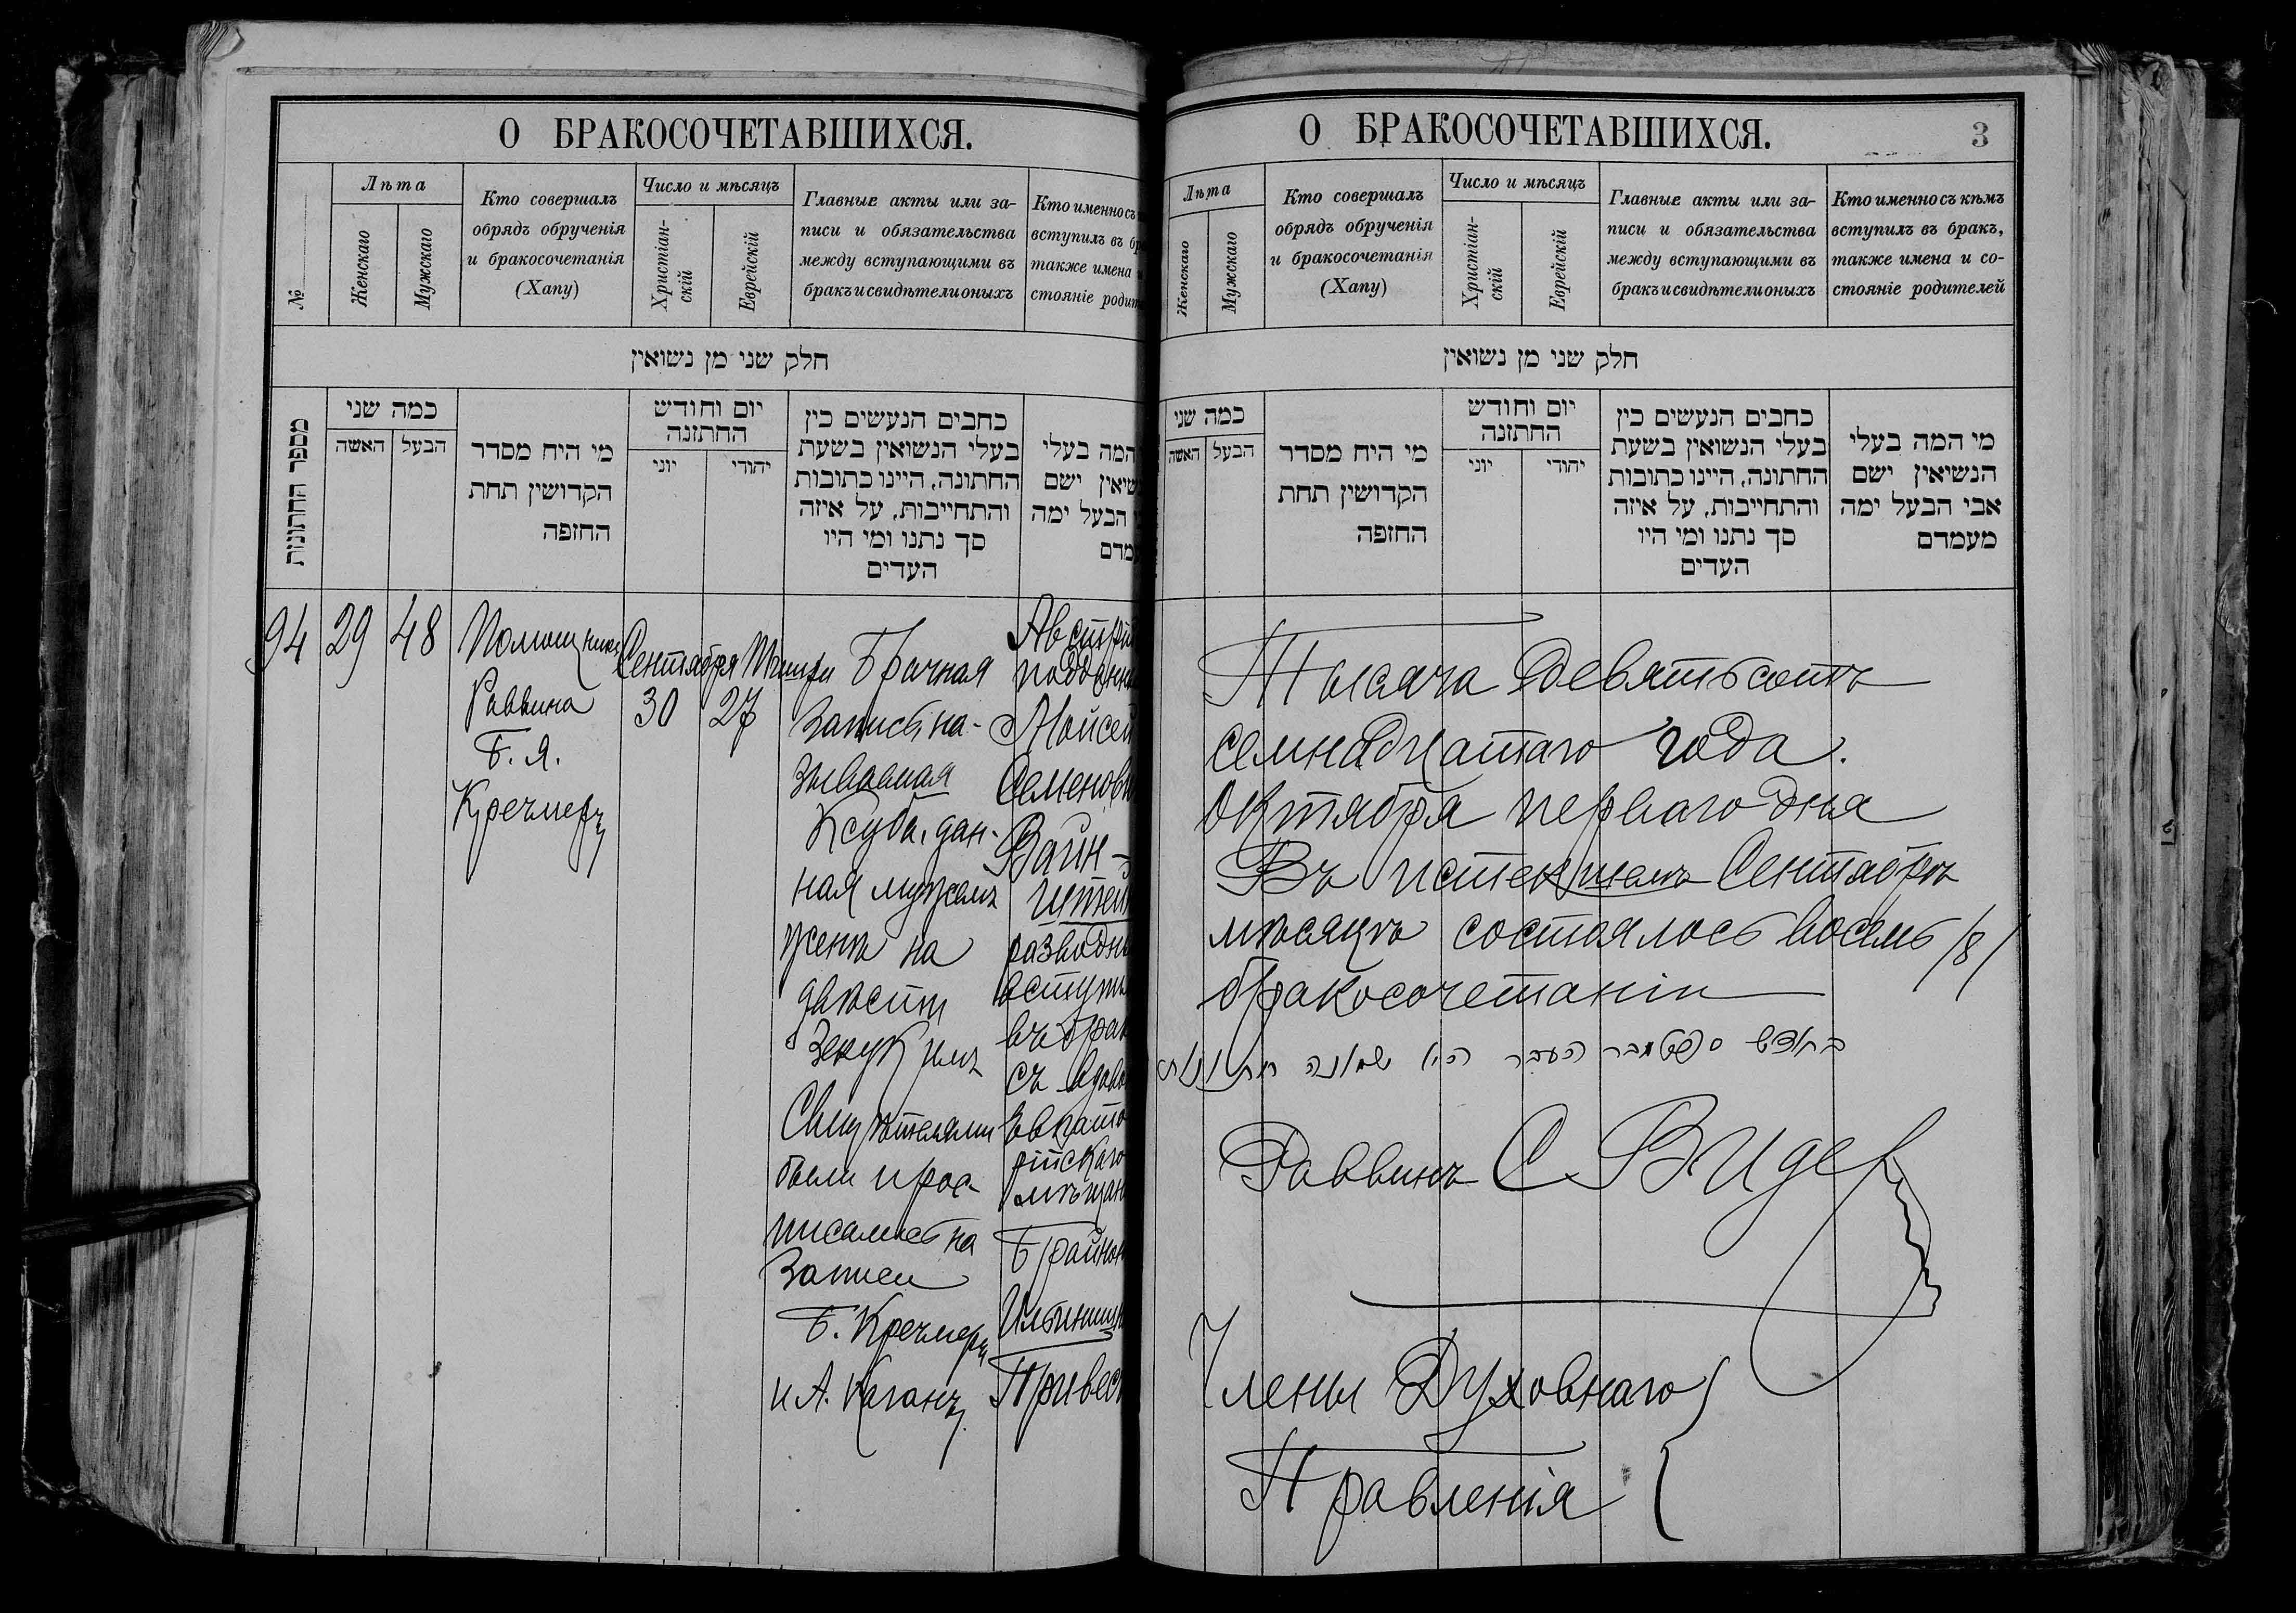 О БРАКОСОЧЕТАВШИХСЯ.
№
Лѣта
Женскаго
Мужскаго
Кто совершалъ
обрядъ обрученія
и бракосочетанія
(Хапу)
Число и мѣсяцъ
Христіан-
скій
Еврейскій
Главные акты или за-
писи и обязательства
между вступающими въ
бракъ и свидѣтели оныхъ
Кто именно съ
вступилъ въ бр
также имена
стояніе родит
חלק שני מן נשואין
מספר החתונות
כמה שני
האשה
הבעל
מי היח מסדר
הקדושין תחת
החופה
יום וחודש
החתונה
יוני
יהודי
כחבים הנעשים כין
בעלי הנשואין בשעת
החתונה, היינו כתובות
והתחייבות, על איזה
סך נתנו ומי היו
העדים
המה בעלי
שיאין ישם
הבעל ימה
מדם
94
29
48
Помощникъ
Раввина
Б. Я.
Кречмеръ
Сентября
30
Тишри
27
Брачная
запись на-
зываемая
Ксуба, дан-
ная мужемъ
женѣ на
двѣсти
Зекукимъ
Свидѣтелями
были рос-
писались на
Записи
Б. Кречмеръ
и А. Каганъ
Австрій
подданн
Мойсей
Семенови
Вайн-
штей
разводн
вступи
въ брак
съ вдово
Евпато
рійскаго
мѣщан
Брайно
Ильинишн
Привес
О БРАКОСОЧЕТАВШИХСЯ.
3
Лѣта
Женскаго
Мужскаго
Кто совершалъ
обрядъ обрученія
и бракосочетанія
(Хапу)
Число и мѣсяцъ
Христіан-
скій
Еврейскій
Главные акты или за-
писи и обязательства
между вступающими въ
бракъ и свидѣтели оныхъ
Кто именно съ кѣмъ
вступилъ въ бракъ,
также имена и со-
стояніе родителей
חלק שני מן נשואין
כמה שני
האשה
הבעל
מי היח מסדר
הקדושין תחת
החופה
יום וחודש
החתונה
יוני
יהודי
כחבים הנעשים כין
בעלי הנשואין בשעת
החתונה, היינו כתובות
והתחייבות, על איזה
סך נתנו ומי היו
העדים
מי המה בעלי
הנשיאין ישם
אבי הבעל ימה
מעמדם
Тысяча девятьсотъ
семнадцатаго года.
Октября перваго дня
Въ истекшемъ Сентябрѣ
мѣсяцѣ состоялось восемь /8/
бракосочетаніи
בחודש סעפטמבר העבר היו שמונה חתונות
Раввинъ С Видер
Члены Духовнаго
Правленія